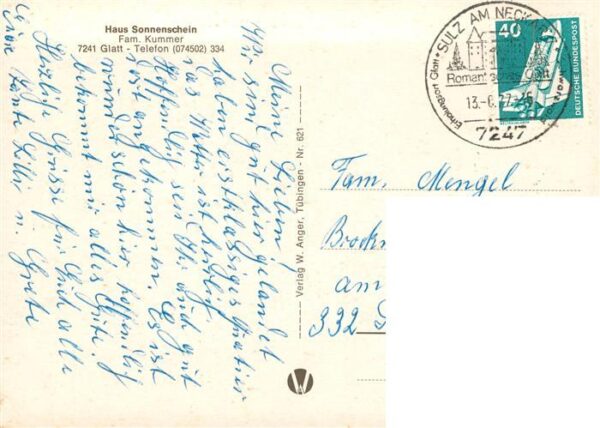 Haus Sonnenschein
Fam. Kummer
7241 Glatt - Telefon (074502) 334
Meine Lieben!
Wir sind gut hier gelandet
haben erstklassiges Quartier
das Wetter ist herrlich
Hoffentlich seid Ihr auch gut
angekommen. Es ist
schön hier hoffentlich
bekommt mir alles Gute.
Herzliche Grüsse für Euch alle
Eure Tante Käthe u. Grete
Verlag W. Anger, Tübingen - Nr. 621
SULZ AM NECKAR
Erholungsort Glatt
13.-6.77-16
7247
40
DEUTSCHE BUNDESPOST
Fam. Mengel
am
332